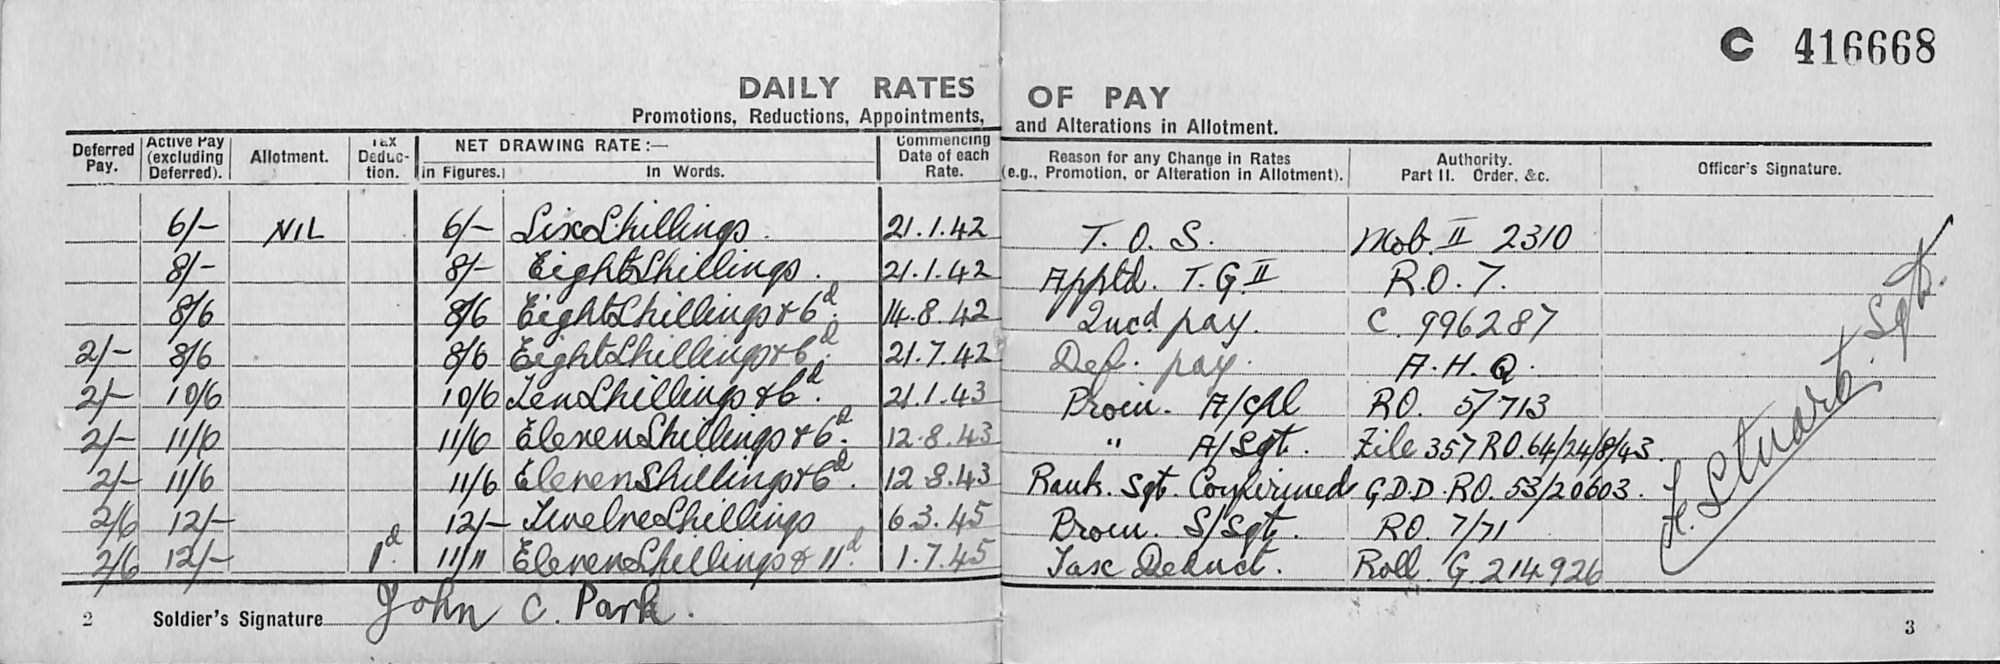 C 416668
DAILY RATES OF PAY
Promotions, Reductions, Appointments, and Alterations in Allotment.
Deferred Pay. Active Pay (excluding Deferred). Allotment. Tax Deduc-tion. NET DRAWING RATE:— in Figures. In Words. Commencing Date of each Rate. Reason for any Change in Rates (e.g., Promotion, or Alteration in Allotment). Authority. Part II. Order, &c. Officer's Signature.
6/- NIL 6/- Six Shillings. 21.1.42 T.O.S. Mob. II 2310
8/- 8/- Eight Shillings. 21.1.42 Apptd. T.G. II R.O. 7.
8/6 8/6 Eight Shillings & 6d. 14.8.42 2ucd pay. C 996287
2/- 8/6 8/6 Eight Shillings & 6d. 21.7.42 Def. pay. A.H.Q.
2/- 10/6 10/6 Ten Shillings & 6d. 21.1.43 Prom. A/Cpl RO. 5/713
2/- 11/6 11/6 Eleven Shillings & 6d. 12.8.43 " A/Sgt. File 357 RO.64/24/8/43.
2/- 11/6 11/6 Eleven Shillings & 6d. 12.8.43 Rank. Sgt. Confirmed G.D.D. RO. 53/20603.
2/6 12/- 12/- Twelve Shillings 6.3.45 Prom. S/Sgt. RO. 7/71
2/6 12/- 1d. 11/11 Eleven Shillings & 11d. 1.7.45 Tax Deduct. Roll. G. 214926
Stuart. Sgt.
2 Soldier's Signature John C. Park.
3